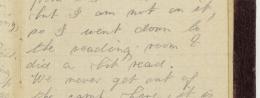 but I am not on it,
so I went down to
the reading room &
did a bit read.
We never get out of
the camp